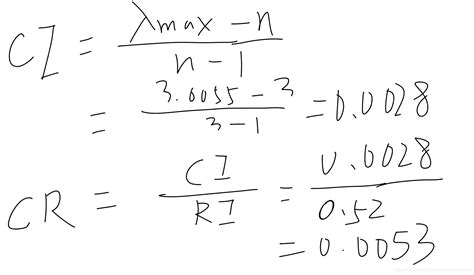 CI = (λmax - n) / (n - 1)
= (3.0055 - 3) / (3 - 1) = 0.0028
CR = CI / RI = 0.0028 / 0.52
= 0.0053